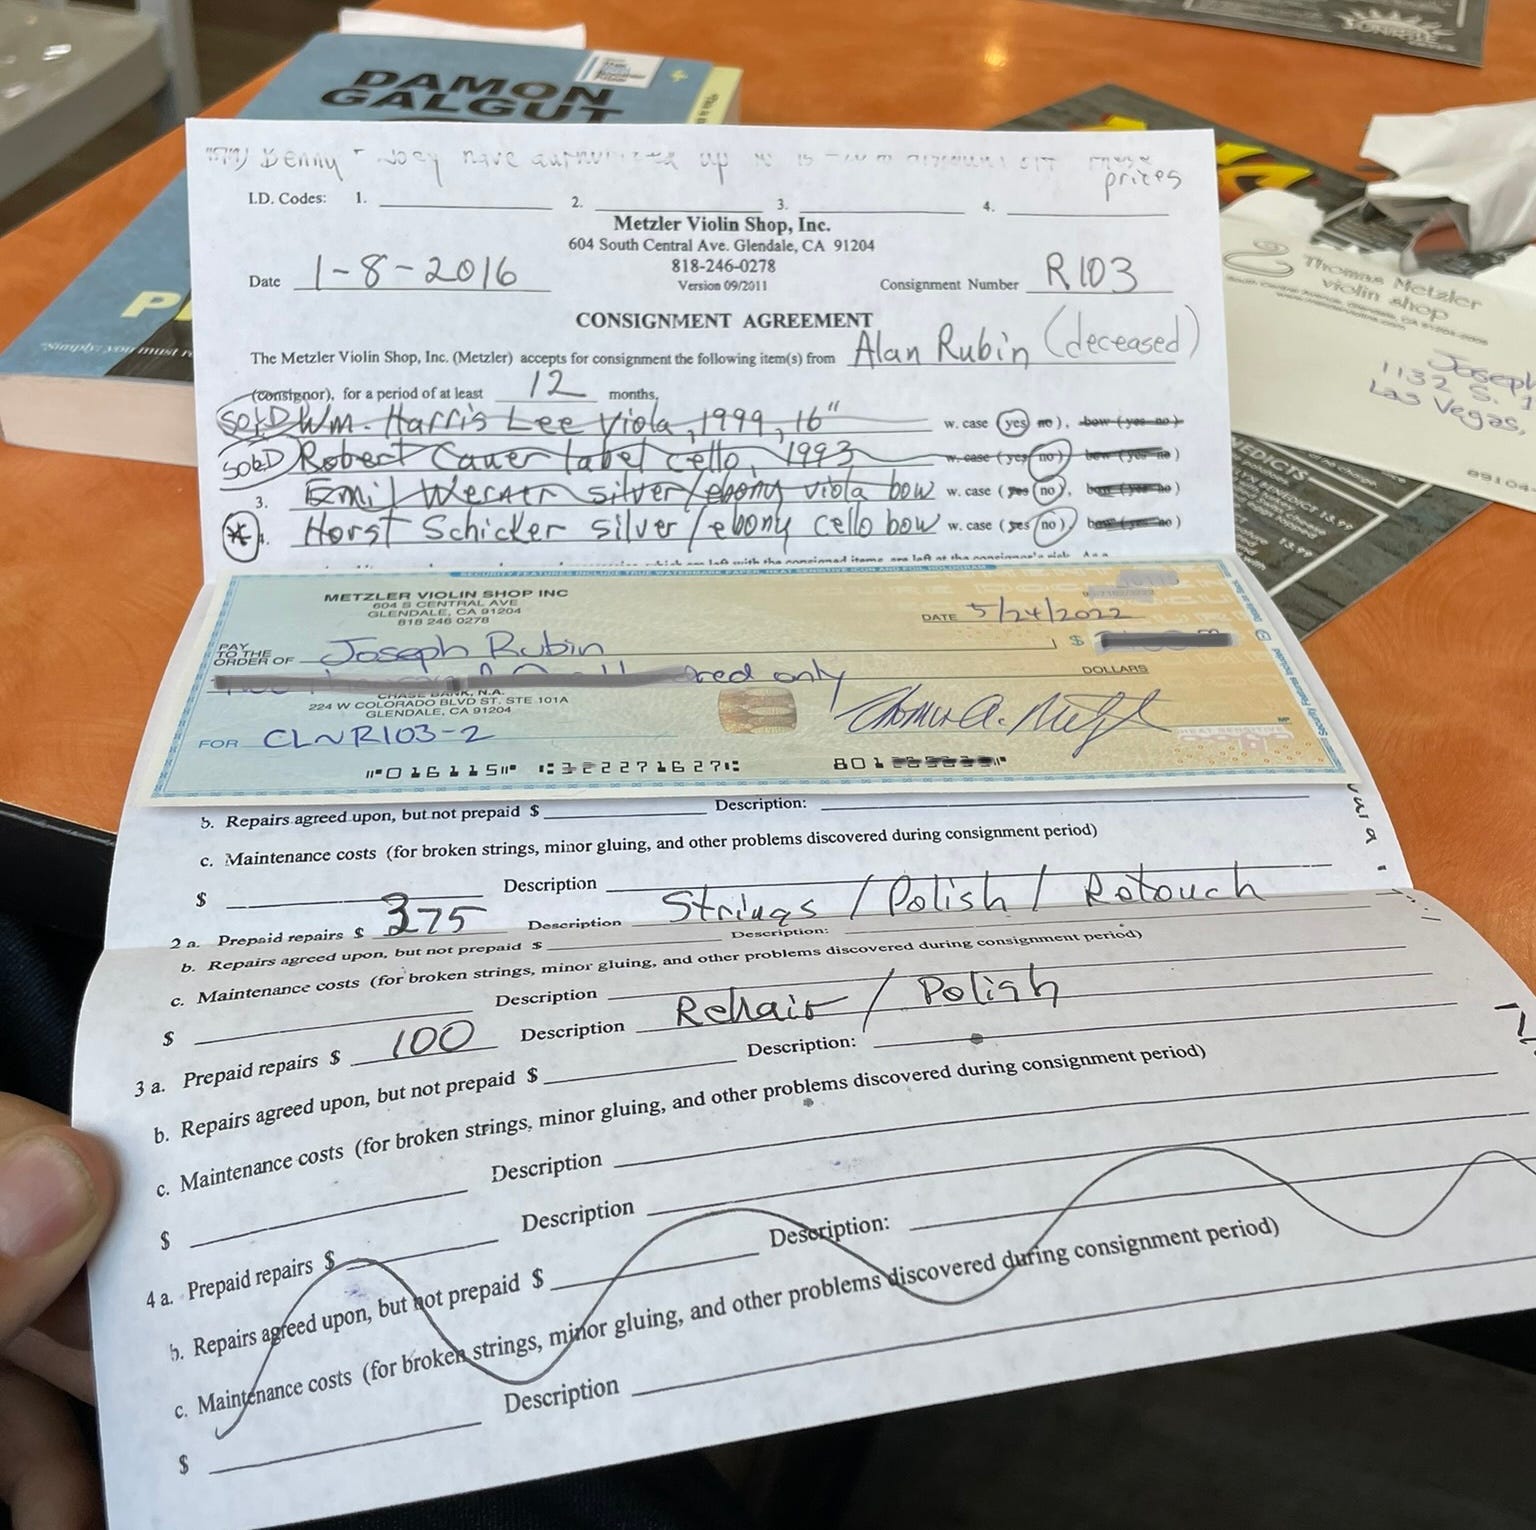 DAMON
GALGUT
Benny + Joey have authorized up to 15-20% discount off these
prices
I.D. Codes: 1. 2. 3. 4.
Metzler Violin Shop, Inc.
604 South Central Ave. Glendale, CA 91204
818-246-0278
Version 09/2011
Date 1-8-2016
Consignment Number R103
CONSIGNMENT AGREEMENT
The Metzler Violin Shop, Inc. (Metzler) accepts for consignment the following item(s) from Alan Rubin (deceased)
(consignor), for a period of at least 12 months,
SOLD Wm. Harris Lee Viola, 1999, 16" w. case (yes no), bow (yes no)
SOLD Robert Cauer label cello, 1993 w. case (yes no) bow (yes no)
3. Emil Werner silver/ebony viola bow w. case (yes no), bow (yes no)
* Horst Schicker silver/ebony cello bow w. case (yes no), bow (yes no)
left with the consigned items are left at the consignor's risk.
SECURITY FEATURES INCLUDE TRUE WATERMARK PAPER, HEAT SENSITIVE ICON AND FOIL HOLOGRAM
METZLER VIOLIN SHOP INC
604 S CENTRAL AVE
GLENDALE, CA 91204
818 246 0278
DATE 5/24/2022
PAY
TO THE
ORDER OF Joseph Rubin $
only DOLLARS
CHASE BANK, N.A.
224 W COLORADO BLVD ST. STE 101A
GLENDALE, CA 91204
FOR CLNR103-2
Thomas A. Metzler
MP
016115 322271627 801
Security Features Included
b. Repairs agreed upon, but not prepaid $ Description:
c. Maintenance costs (for broken strings, minor gluing, and other problems discovered during consignment period)
$ Description
2 a. Prepaid repairs $ 375 Description Strings / Polish / Retouch
b. Repairs agreed upon, but not prepaid $ Description:
c. Maintenance costs (for broken strings, minor gluing, and other problems discovered during consignment period)
$ Description
3 a. Prepaid repairs $ 100 Description Rehair / Polish
b. Repairs agreed upon, but not prepaid $ Description:
c. Maintenance costs (for broken strings, minor gluing, and other problems discovered during consignment period)
$ Description
4 a. Prepaid repairs $ Description
b. Repairs agreed upon, but not prepaid $ Description:
c. Maintenance costs (for broken strings, minor gluing, and other problems discovered during consignment period)
$ Description
"Simply: you must
Thomas Metzler
violin shop
Joseph
1132 S. 1
Las Vegas,
89104